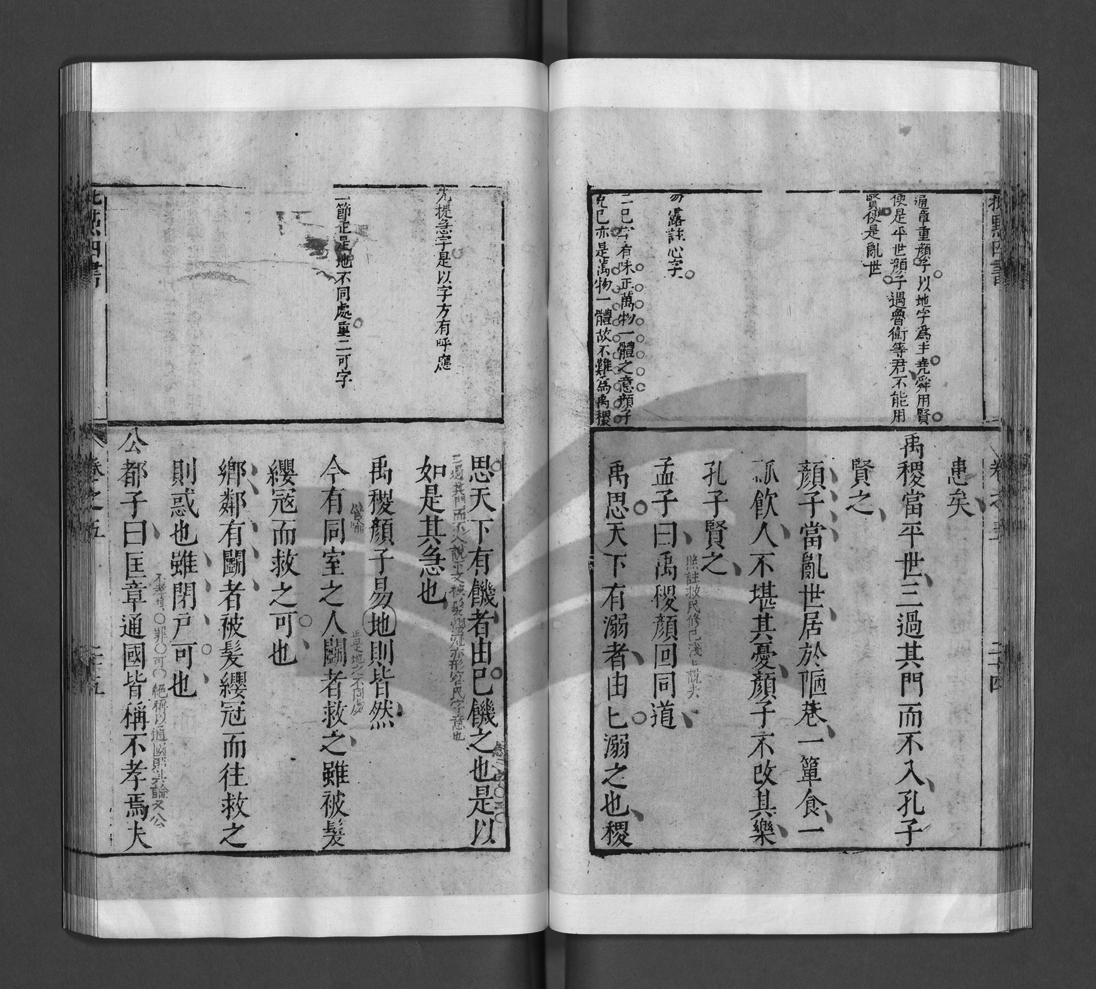 通章重顏子以地字爲主堯舜用賢
便是平世顏子遇魯衛等君不能用
賢便是亂世
勿露註心字
二已字有味正萬物一體之意顏子
克已亦是萬物一體故不難爲禹稷
患矣
禹稷當平世三過其門而不入孔子
賢之
顏子當亂世居於陋巷一簞食一
瓢飲人不堪其憂顏子不改其樂
孔子賢之
照註救民修已淺上說去
孟子曰禹稷顏回同道
禹思天下有溺者由已溺之也稷
卷之五
二十四
先提急字是以字方有呼應
二節正是地不同處重二可字
思天下有饑者由已饑之也是以
如是其急也
禹稷顏子易地則皆然
正是地之不同處
今有同室之人鬭者救之雖被髮
纓冠而救之可也
鄉鄰有鬭者被髮纓冠而往救之
則惑也雖閉戸可也
公都子曰匡章通國皆稱不孝焉夫
批點四書
卷之五
二十五